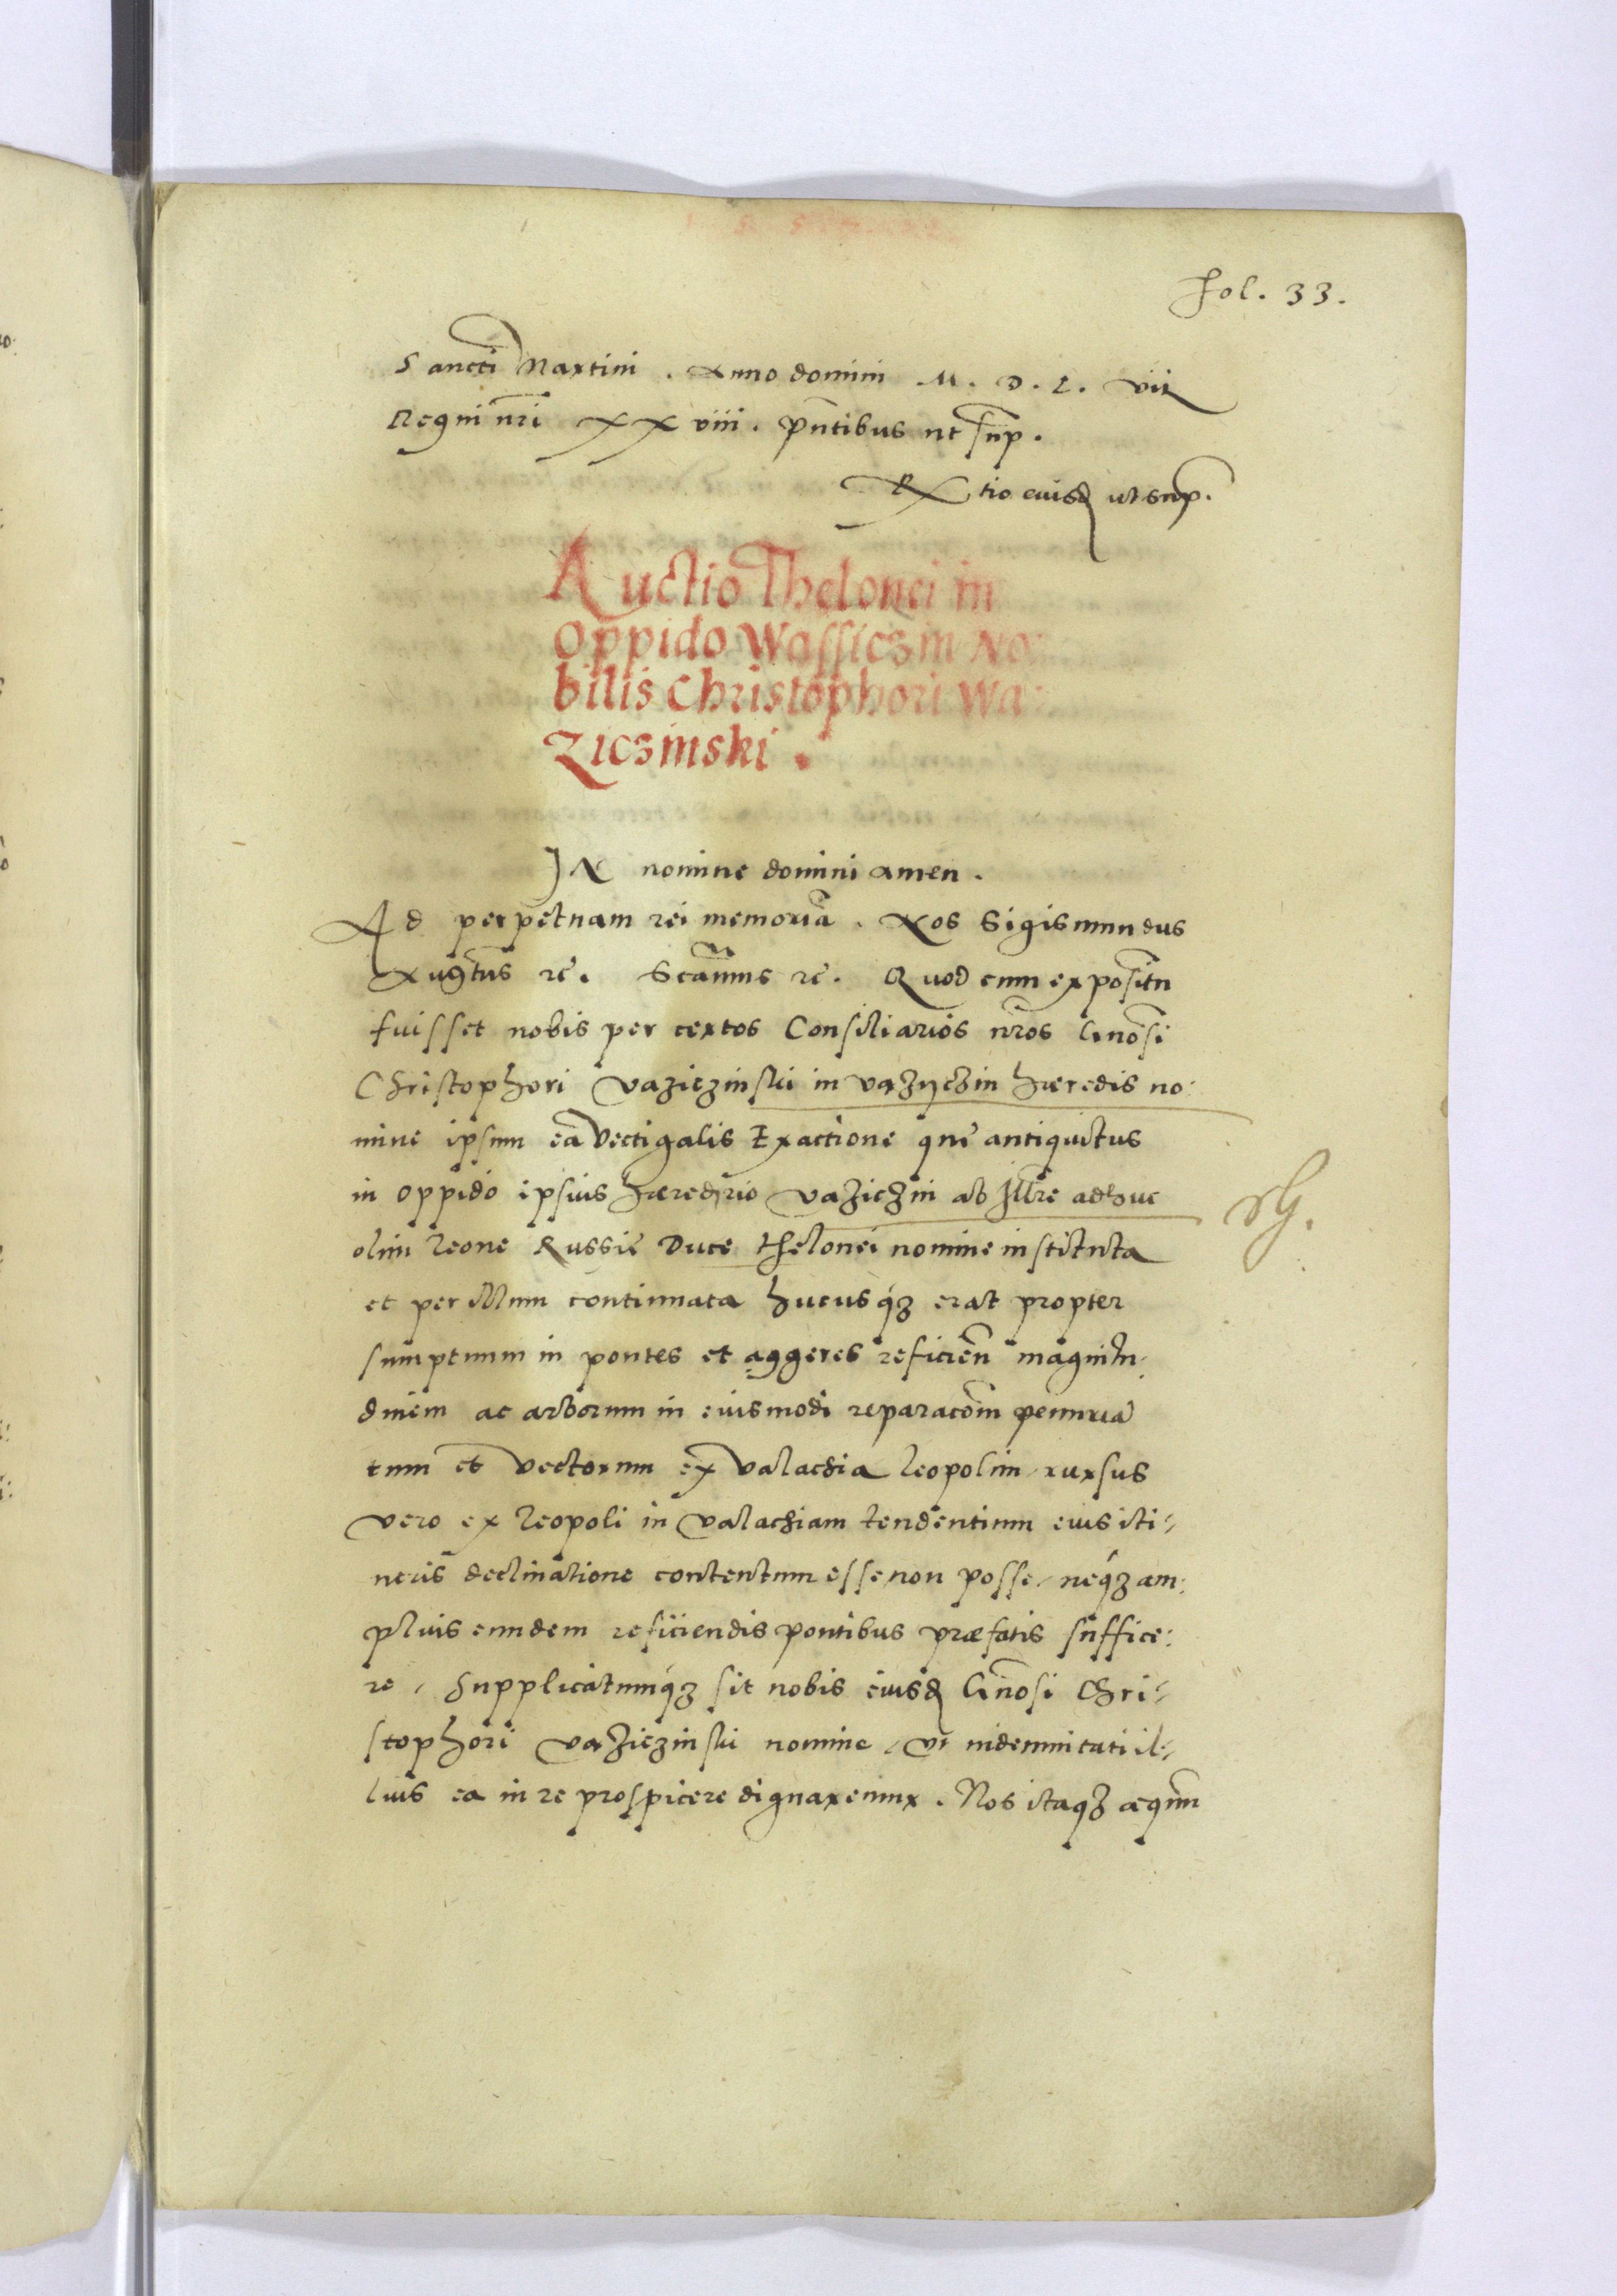 Fol. 33.
Sancti Martini. Anno domini M. D. L. vii
Regni nri XX viii. pntibus ut sup.
Rtio eiusd ut sup.
Auctio Thelonei in
Oppido Wassiczin No:
bilis Christophori Wa:
ziczinski.
IN nomine domini amen.
Ad perpetuam rei memoria. Nos Sigismundus
Augtus rc. Scamus rc. Quod cum expositu
fuisset nobis per certos Consiliarios nros Gnosi
Christophori vaziczinski in vazyczin hæredis no:
mine ipsum ea Vectigalis Exactione que antiquitus
in oppido ipsius hæredrio vaziczin ab Illre adhuc
olim Leone Russie Duce thelonei nomine instituta
et per illum continuata hucusqz erat propter
sumptuum in pontes et aggeres reficien magnitu:
dinem ac arborum in eiusmodi reparacom penuria
tum et vectorum ex valachia leopolim rursus
vero ex leopoli in valachiam tendentium eius iti-
neris declinatione contentum esse non posse, neqz am:
plius eundem reficiendis pontibus præfatis suffice:
re, Supplicatumqz sit nobis eiusd Gnosi Chri-
stophori vaziczinski nomine, vt indemnitati il-
lius ea in re prospicere dignaremur. Nos itaqz æquum